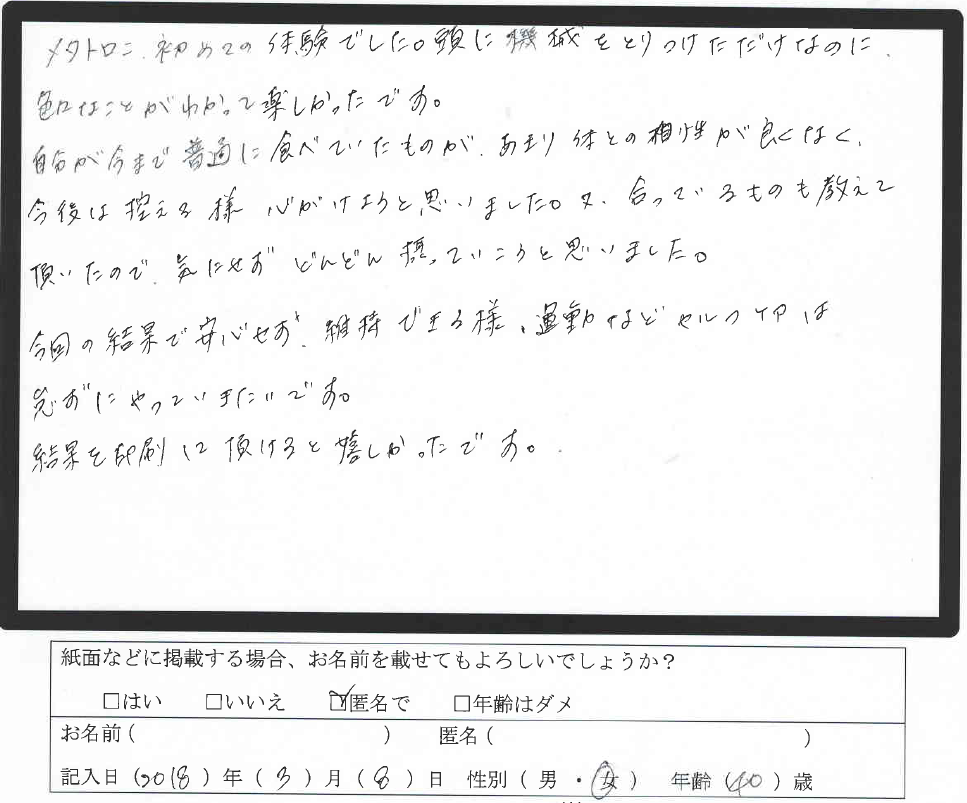 メタトロニ、初めての体験でした。頭に機械をとりつけただけなのに、
色々なことがわかって楽しかったです。
自分が今まで普通に食べていたものが、あまり体との相性が良くなく、
今後は控える様 心がけようと思いました。又、合っているものも教えて
頂いたので、気にせず どんどん摂っていこうと思いました。
今回の結果で安心せず、維持できる様、運動などセルフケアは
怠ずにやっていきたいです。
結果を印刷して頂けると嬉しかったです。
紙面などに掲載する場合、お名前を載せてもよろしいでしょうか？
□はい □いいえ ☑匿名で □年齢はダメ
お名前（ ） 匿名（ ）
記入日（2018）年（3）月（8）日 性別（男・女） 年齢（40）歳